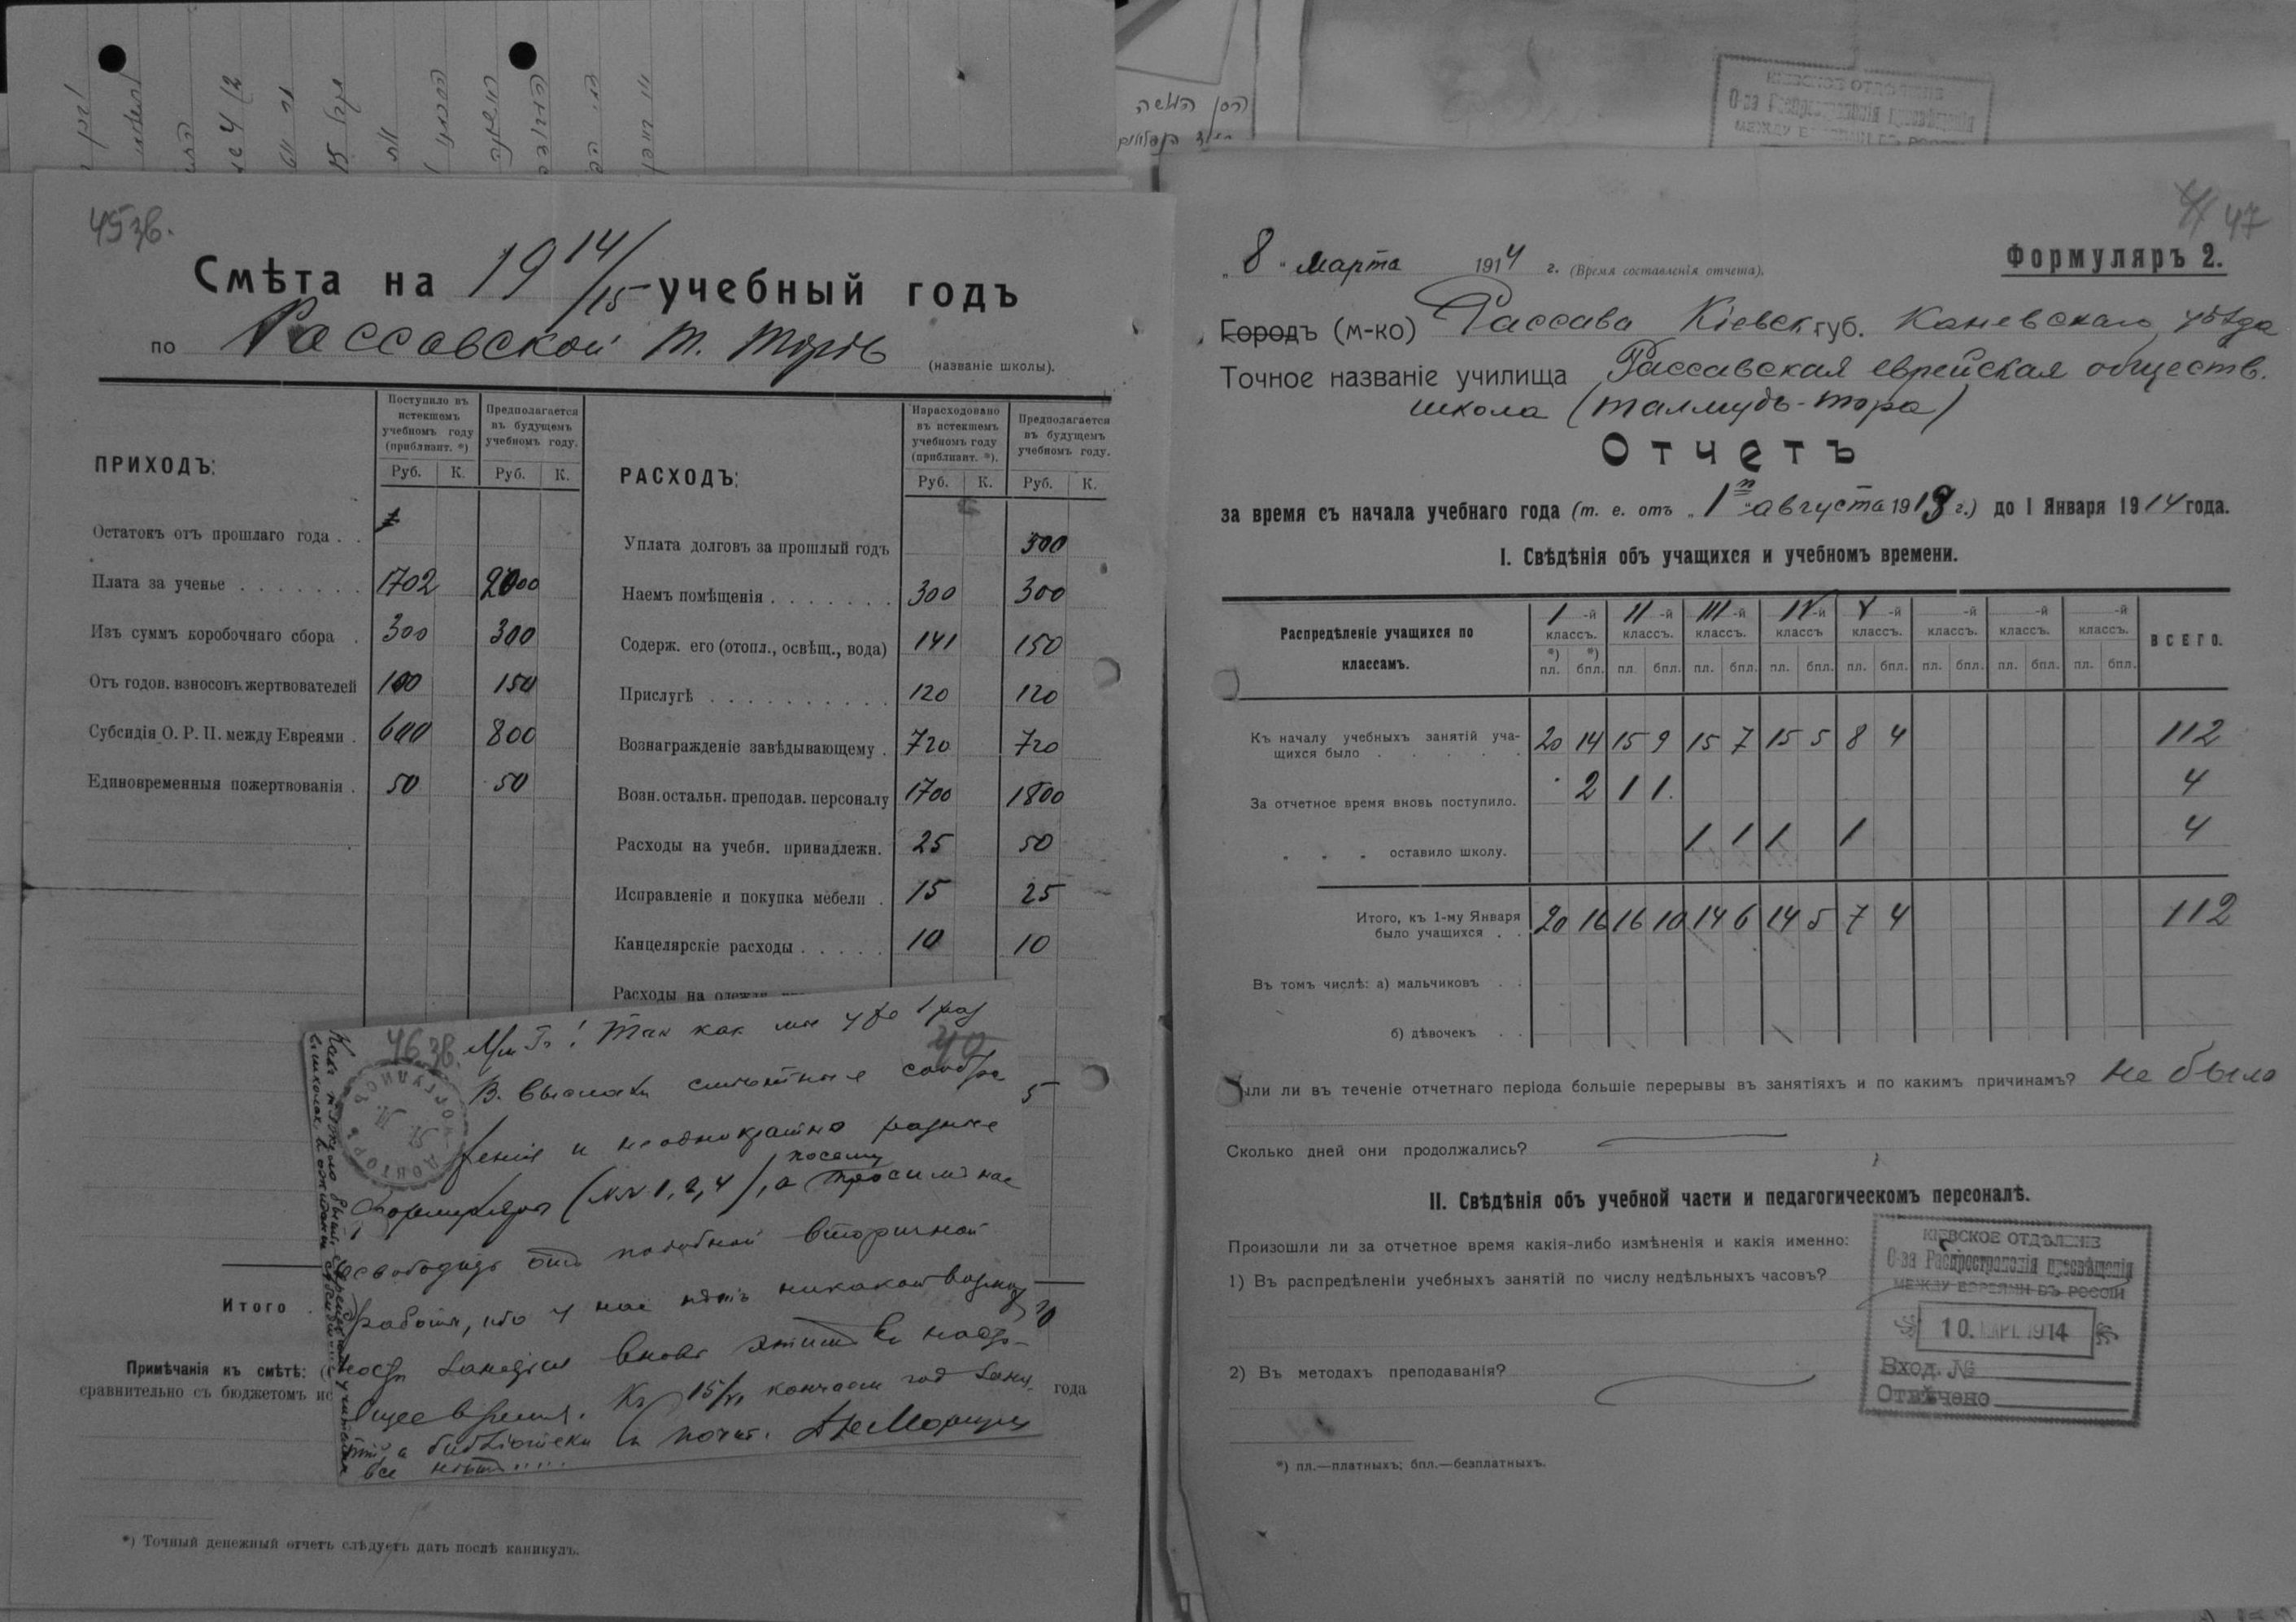 45 зв.
Смѣта на 1914/15 учебный годъ
по Рассавской Т. Торѣ (названіе школы).
ПРИХОДЪ:
Поступило въ истекшемъ учебномъ году (приблизит. *)
Предполагается въ будущемъ учебномъ году.
Руб. К. Руб. К.
Остатокъ отъ прошлаго года . .
Плата за ученье . . . . . . . 1702 2000
Изъ суммъ коробочнаго сбора . 300 300
Отъ годов. взносовъ жертвователей 100 150
Субсидія О. Р. П. между Евреями . 600 800
Единовременныя пожертвованія . 50 50
Итого
РАСХОДЪ:
Израсходовано въ истекшемъ учебномъ году (приблизит. *).
Предполагается въ будущемъ учебномъ году.
Руб. К. Руб. К.
Уплата долговъ за прошлый годъ 500
Наемъ помѣщенія . . . . . . . 300 300
Содерж. его (отопл., освѣщ., вода) 141 150
Прислугѣ . . . . . . . . . . 120 120
Вознагражденіе завѣдывающему . 720 720
Возн. остальн. преподав. персоналу 1700 1800
Расходы на учебн. принадлежн. 25 50
Исправленіе и покупка мебели . 15 25
Канцелярскіе расходы . . . . . 10 10
Расходы на
46 зв.
Так как мы уже 1 раз
В. выслали смѣтные сообра
женія и неоднократно разные
формуляры (№№ 1, 2, 4), а посему просимъ нас
освободить отъ подобной вторичной
работы, ибо у нас нѣтъ никакой возмож
вновь этимъ въ насто-
ящее время. Къ 15/VI кончаем год
а библіотеки
все нѣтъ.....
Примѣчанія къ смѣтѣ:
сравнительно съ бюджетомъ ис
года
*) Точный денежный отчетъ слѣдуетъ дать послѣ каникулъ.
КІЕВСКОЕ ОТДѢЛЕНІЕ
О-ва Распространенія просвѣщенія
МЕЖДУ ЕВРЕЯМИ ВЪ РОССІИ
47
„8“ Марта 1914 г. (Время составленія отчета).
Формуляръ 2.
Городъ (м-ко) Рассава Кіевск губ. Каневскаго уѣзда
Точное названіе училища Рассавская еврейская обществ.
школа (талмудъ-тора)
Отчетъ
за время съ начала учебнаго года (т. е. отъ „1го“ августа 1913 г.) до 1 Января 1914 года.
I. Свѣдѣнія объ учащихся и учебномъ времени.
Распредѣленіе учащихся по классамъ.
I -й классъ. II -й классъ. III -й классъ. IV -й классъ V -й классъ. -й классъ. -й классъ. -й классъ. ВСЕГО.
*) пл. *) бпл. пл. бпл. пл. бпл. пл. бпл. пл. бпл. пл. бпл. пл. бпл. пл. бпл.
Къ началу учебныхъ занятій уча-
щихся было . . . . . 20 14 15 9 15 7 15 5 8 4 112
За отчетное время вновь поступило. 2 1 1. 4
„ „ „ оставило школу. 1 1 1 1 4
Итого, къ 1-му Января
было учащихся . . 20 16 16 10 14 6 14 5 7 4 112
Въ томъ числѣ: а) мальчиковъ . .
б) дѣвочекъ . .
ыли ли въ теченіе отчетнаго періода большіе перерывы въ занятіяхъ и по какимъ причинамъ? Не было
Сколько дней они продолжались?
II. Свѣдѣнія объ учебной части и педагогическомъ персоналѣ.
Произошли ли за отчетное время какія-либо измѣненія и какія именно:
1) Въ распредѣленіи учебныхъ занятій по числу недѣльныхъ часовъ?
2) Въ методахъ преподаванія?
КІЕВСКОЕ ОТДѢЛЕНІЕ
О-ва Распространенія просвѣщенія
МЕЖДУ ЕВРЕЯМИ ВЪ РОССІИ
10. МАРТ. 1914
Вход. №
Отвѣчено
*) пл.—платныхъ; бпл.—безплатныхъ.